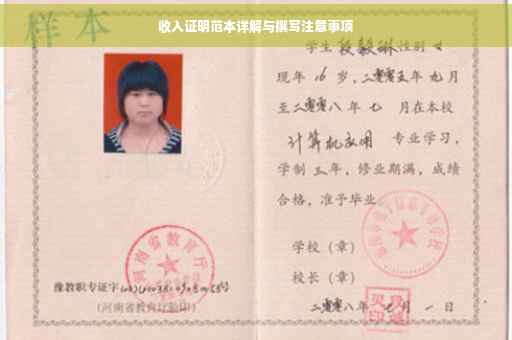 收入证明范本详解与撰写注意事项
样本
学生段毅琳性别女
现年16岁，二零零五年九月
至二零零八年七月在本校
计算机应用 专业学习，
学制三年，修业期满，成绩
合格，准予毕业。
学校（章）
校长（章）
二零零八年七月一日
河南省教育厅
豫教职专证字
（河南省教育厅验印）